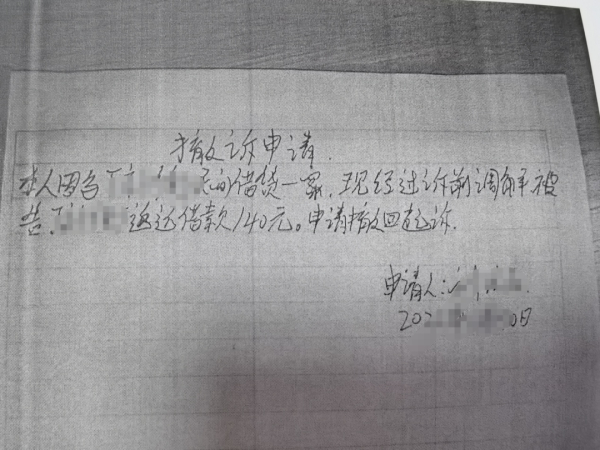 撤诉申请
本人因与民间借贷一案,现经过诉前调解被
告返还借款140元。申请撤回起诉.
申请人:
202 0日